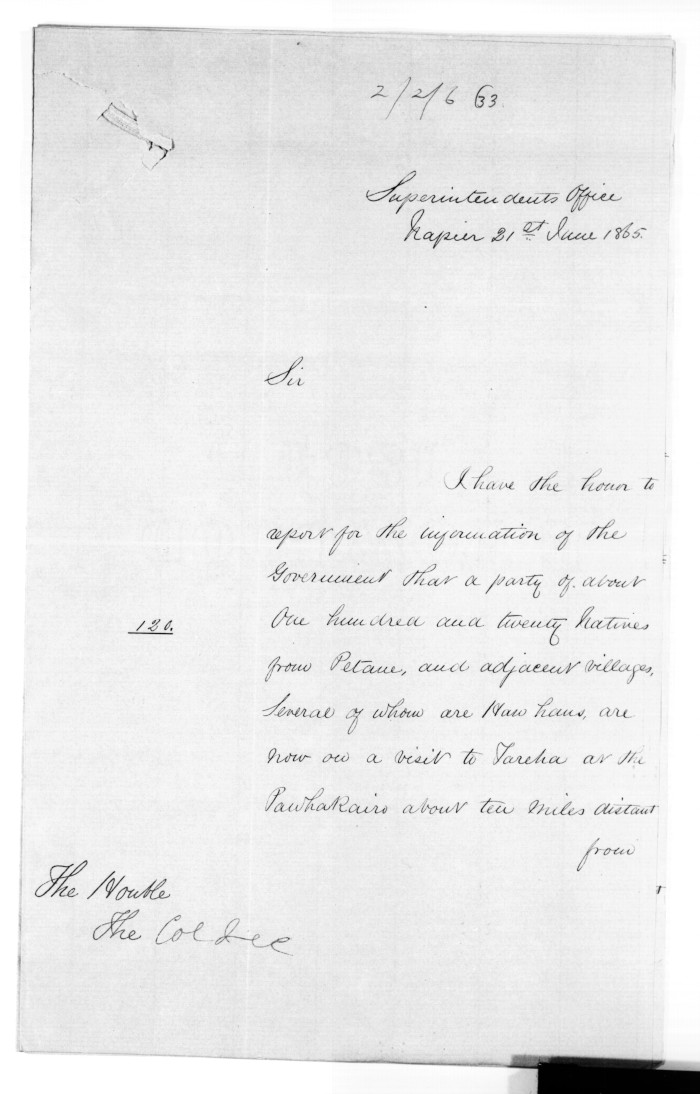 2/2/6 63
Superintendents Office
Napier 21st June 1865.
Sir
I have the honor to
report for the information of the
Government that a party of about
One hundred and twenty Natives
120.
from Petane, and adjacent villages,
Several of whom are Hau haus, are
now on a visit to Tareha at the
Pawhakairo about ten miles distant
from
The Honble
The Col Sec